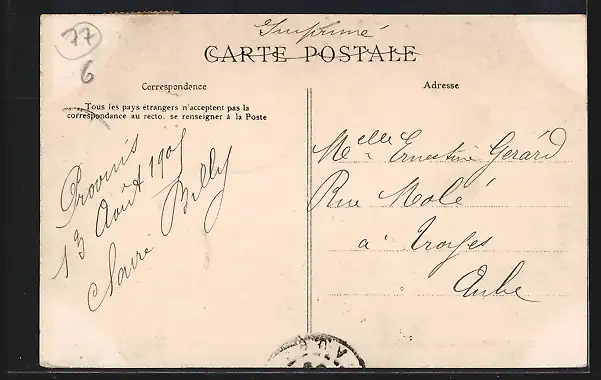 77
6
Imprimé
CARTE POSTALE
Correspondance
Adresse
Tous les pays étrangers n'acceptent pas la
correspondance au recto, se renseigner à la Poste
Provins
13 Août 1905
Claire Billy
Melle Ernestine Gerard
Rue Molé
à Troyes
Aube